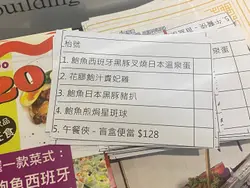 building
枱號
1. 鮑魚西班牙黑豚叉燒日本溫泉蛋
2. 花膠鮑汁貴妃雞
3. 鮑魚日本黑豚豬扒
4. 鮑魚煎焗星斑球
5. 午餐俠 - 盲盒便當 $128
20
一款菜式：
鮑魚西班牙